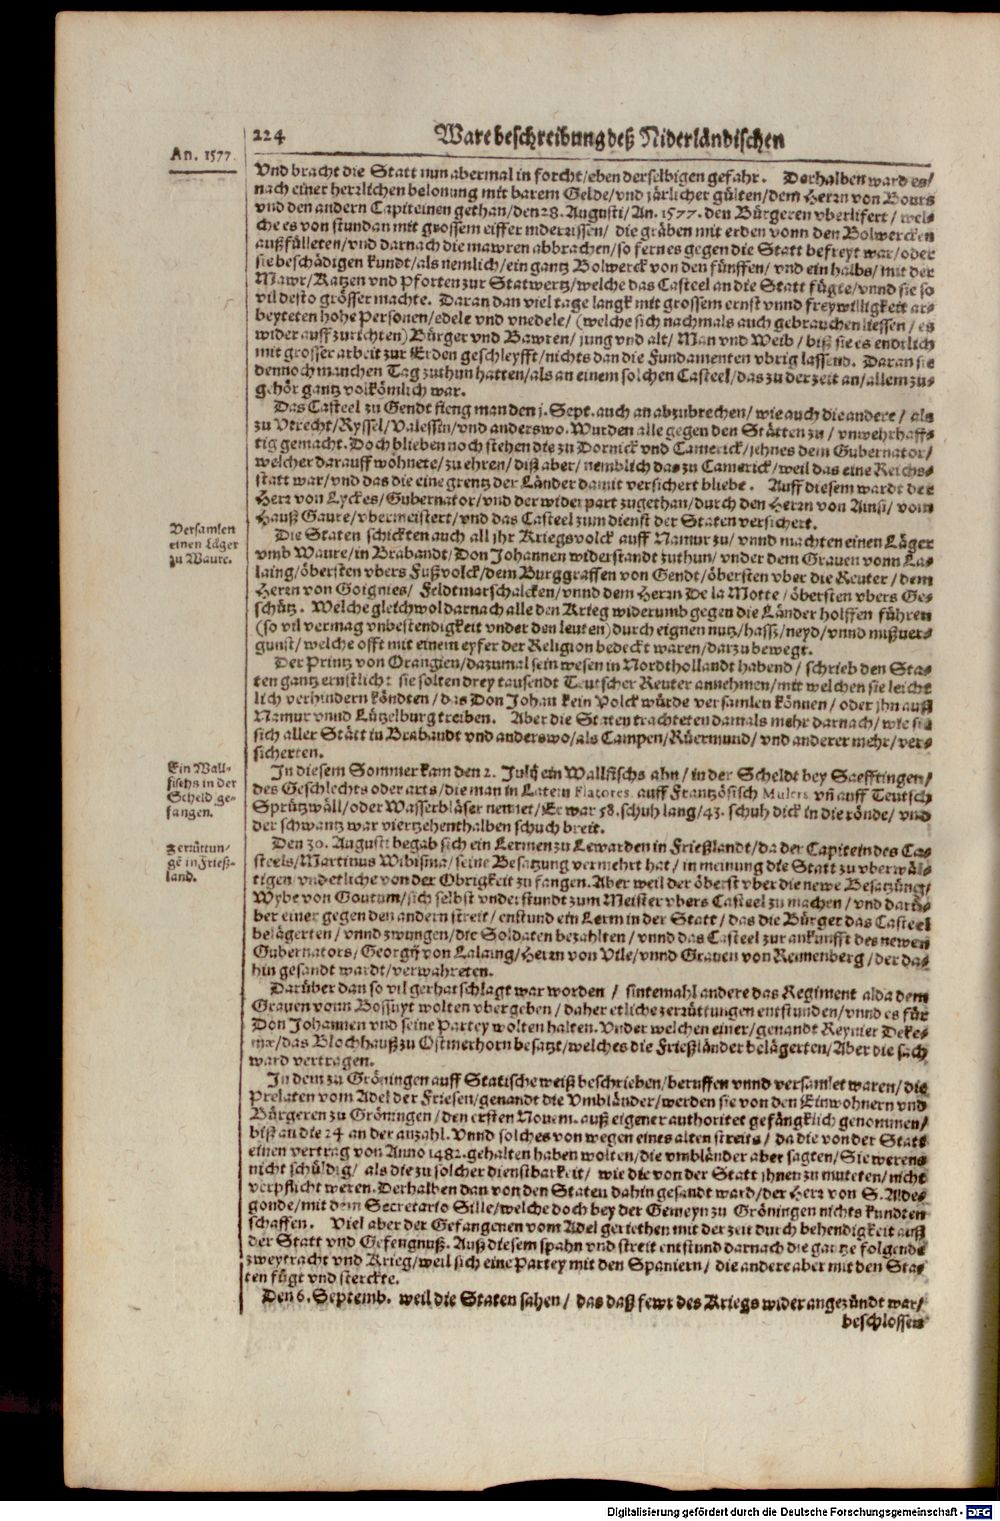 224 Ware beschreibung deß Niderländischen
An. 1577.
Vnd bracht die Statt nun abermal in forcht/eben derselbigen gefahr. Derhalben ward es/
nach einer herrlichen belonung mit barem Gelde/vnd järlicher gülten/dem Herrn von Bours
vnd den andern Capiteinen gethan/den 28. Augusti/An. 1577. den Bürgeren vberlifert/wel-
che es von stundan mit grossem eiffer niderrissen/ die gräben mit erden vonn den Bolwercken
außfülleten/vnd darnach die mawren abbrachen/so fernes gegen die Statt befreyt war/oder
sie beschädigen kundt/als nemlich/ein gantz Bolwerck von den fünffen/ vnd ein halbs/ mit der
Mawr/Katzen vnd Pforten zur Statwertz/welche das Casteel an die Statt fügte/vnnd sie so
vil desto grösser machte. Daran dan viel tage langk mit grossem ernst vnnd freywilligkeit ar-
beyteten hohe Personen/edele vnd vnedele/ (welche sich nachmals auch gebrauchen liessen/ es
wider auff zurichten) Bürger vnd Bawren/ jung vnd alt/ Man vnd Weib/ biß sie es endtlich
mit grosser arbeit zur Erden geschleyfft/nichts dan die Fundamenten vbrig lassend. Daran sie
dennoch manchen Tag zuthun hatten/als an einem solchen Casteel/das zu der zeit an/allem zu-
gehör gantz volkömlich war.
Das Casteel zu Gendt fieng man den j. Sept. auch an abzubrechen/ wie auch die andere/ als
zu Vtrecht/Ryssel/Valessin/vnd anderswo. Wurden alle gegen den Stätten zu/ vnwehrhaff-
tig gemacht. Doch blieben noch stehen die zu Dornick vnd Camerick/jehnes dem Gubernator/
welcher darauff wohnete/zu ehren/ diß aber/ nemblich das zu Camerick/weil das eine Reichs-
statt war/vnd das die eine grentz der Länder damit versichert bliebe. Auff diesem wardt der
Herr von Lyckes/Gubernator/vnd der widerpart zugethan/durch den Herrn von Ainsi/ vom
Hauß Gaure/vbermeistert/vnd das Casteel zum dienst der Staten versichert.
Versamlen
einen Läger
zu Waure.
Die Staten schickten auch all jhr Kriegsvolck auff Namur zu/ vnnd machten einen Läger
vmb Waure/in Brabandt/Don Johannen widerstandt zuthun/vnder dem Grauen vonn La-
laing/öbersten vbers Fußvolck/dem Burggraffen von Gendt/öbersten vber die Reuter/ dem
Herrn von Goignies/ Feldtmarschalcken/vnnd dem Herrn De la Motte/ öbersten vbers Ge-
schütz. Welche gleichwol darnach alle den Krieg widerumb gegen die Länder holffen führen
(so vil vermag vnbestendigkeit vnder den leuten) durch eignen nutz/hassz/neyd/vnnd mißver-
gunst/welche offt mit einem eyfer der Religion bedeckt waren/darzu bewegt.
Der Printz von Orangien/dazumal sein wesen in Nordthollandt habend/ schrieb den Sta-
ten gantz ernstlich: sie solten drey tausendt Teutscher Reuter annehmen/mit welchen sie leicht
lich verhindern köndten/das Don Johan kein Volck würde versamlen können/ oder jhn auß
Namur vnnd Lützelburg treiben. Aber die Staten trachteten damals mehr darnach/ wie sie
sich aller Stätt in Brabandt vnd anderswo/als Campen/Rüermund/ vnd anderer mehr/ver-
sicherten.
Ein Wall-
fischs in der
Scheld ge-
fangen.
In diesem Sommer kam den 2. Julij ein Wallfischs ahn/ in der Scheldt bey Saefftingen/
des Geschlechts oder arts/die man in Latein Flatores. auff Frantzösisch Mulers. vñ auff Teutsch
Sprützwäll/oder Wasserbläser nennet/Er war 58. schuh lang/43. schuh dick in die rönde/ vnd
der schwantz war viertzehenthalben schuch breit.
Zerrüttun-
gē in Frieß-
land.
Den 30. Augusti begab sich ein Lermen zu Lewarden in Frießlandt/da der Capitein des Ca-
steels/Martinus Wibisma/seine Besatzung vermehrt hat/in meinung die Statt zu vberwäl-
tigen/vnd etliche von der Obrigkeit zu fangen. Aber weil der öberst vber die newe Besatzüng/
Wybe von Goutum/sich selbst vnderstundt zum Meister vbers Casteel zu machen/vnd darü-
ber einer gegen den andern streit/enstund ein Lerm in der Statt/das die Bürger das Casteel
belägerten/vnnd zwungen/die Soldaten bezahlten/vnnd das Casteel zur ankunfft des newen
Gubernators/Georgij von Lalaing/Herrn von Vile/vnnd Grauen von Rennenberg/der da-
hin gesandt wardt/verwahreten.
Darüber dan so vil gerhatschlagt war worden/ sintemahl andere das Regiment alda dem
Grauen vonn Bossuyt wolten vbergeben/daher etliche zerrüttungen entstunden/vnnd es für
Don Johannen vnd seine Partey wolten halten. Vnder welchen einer/genandt Reynier Deke-
ma/das Blochhauß zu Ostmerhorn besatzt/welches die Frießländer belägerten/Aber die sach
ward vertragen.
In dem zu Gröningen auff Statische weiß beschrieben/beruffen vnnd versamlet waren/die
Prelaten vom Adel der Friesen/genandt die Vmbländer/werden sie von den Einwohnern vnd
Bürgeren zu Gröningen/den ersten Nouem. auß eigener authoritet gefängklich genommen/
biß an die 24 an der anzahl. Vnnd solches von wegen eines alten streits/ da die von der Statt
einen vertrag von Anno 1482. gehalten haben wolten/die vmbländer aber sagten/Sie werens
nicht schüldig/ als die zu solcher dienstbarkeit/ wie die von der Statt jhnen zu muteten/nicht
verpflicht weren. Derhalben dan von den Staten dahin gesandt ward/der Herr von S. Alde-
gonde/mit dem Secretario Sille/welche doch bey der Gemeyn zu Gröningen nichts kundten
schaffen. Viel aber der Gefangenen vom Adel geriethen mit der zeit durch behendigkeit auß
der Statt vnd Gefengnuß. Auß diesem spahn vnd streit entstund darnach die gantze folgende
zweytracht vnd Krieg/weil sich eine Partey mit den Spaniern/ die andere aber mit den Sta-
ten fügt vnd sterckte.
Den 6. Septemb. weil die Staten sahen/ das daß fewr des Kriegs wider angezündt war/
beschlossen
Digitalisierung gefördert durch die Deutsche Forschungsgemeinschaft - DFG